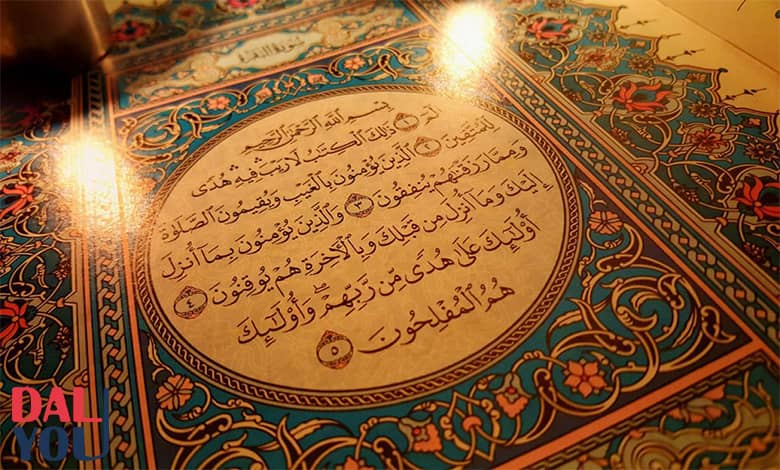 سورة البقرة
بِسْمِ اللَّهِ الرَّحْمَٰنِ الرَّحِيمِ
الٓمٓ ١ ذَٰلِكَ الْكِتَٰبُ لَا رَيْبَ فِيهِ هُدًى
لِّلْمُتَّقِينَ ٢ الَّذِينَ يُؤْمِنُونَ بِالْغَيْبِ وَيُقِيمُونَ الصَّلَوٰةَ
وَمِمَّا رَزَقْنَٰهُمْ يُنفِقُونَ ٣ وَالَّذِينَ يُؤْمِنُونَ بِمَآ أُنزِلَ
إِلَيْكَ وَمَآ أُنزِلَ مِن قَبْلِكَ وَبِالْءَاخِرَةِ هُمْ يُوقِنُونَ ٤
أُو۟لَٰٓئِكَ عَلَىٰ هُدًى مِّن رَّبِّهِمْ ۖ وَأُو۟لَٰٓئِكَ
هُمُ الْمُفْلِحُونَ ٥
DAL
YOU